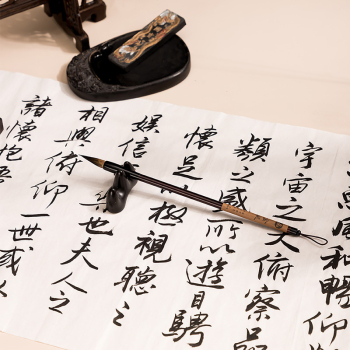 風和暢仰
宇宙之大俯察品
類之盛所以遊目騁
懷足以極視聽之
娛信樂也夫人之
相與俯仰一世或
諸懷抱悟